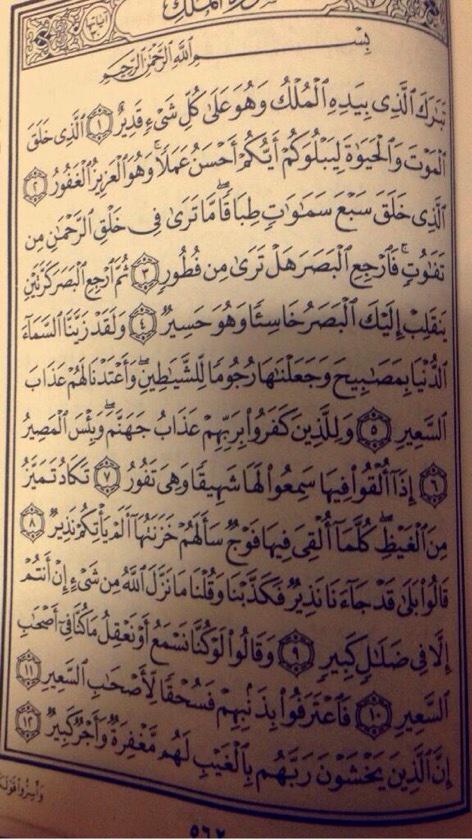 سُورَةُ الْمُلْكِ
بِسْمِ اللَّهِ الرَّحْمَٰنِ الرَّحِيمِ
تَبَٰرَكَ ٱلَّذِى بِيَدِهِ ٱلْمُلْكُ وَهُوَ عَلَىٰ كُلِّ شَىْءٍ قَدِيرٌ ١ ٱلَّذِى خَلَقَ
ٱلْمَوْتَ وَٱلْحَيَوٰةَ لِيَبْلُوَكُمْ أَيُّكُمْ أَحْسَنُ عَمَلًا ۚ وَهُوَ ٱلْعَزِيزُ ٱلْغَفُورُ ٢
ٱلَّذِى خَلَقَ سَبْعَ سَمَٰوَٰتٍ طِبَاقًا ۖ مَّا تَرَىٰ فِى خَلْقِ ٱلرَّحْمَٰنِ مِن
تَفَٰوُتٍ ۖ فَٱرْجِعِ ٱلْبَصَرَ هَلْ تَرَىٰ مِن فُطُورٍ ٣ ثُمَّ ٱرْجِعِ ٱلْبَصَرَ كَرَّتَيْنِ
يَنقَلِبْ إِلَيْكَ ٱلْبَصَرُ خَاسِئًا وَهُوَ حَسِيرٌ ٤ وَلَقَدْ زَيَّنَّا ٱلسَّمَآءَ
ٱلدُّنْيَا بِمَصَٰبِيحَ وَجَعَلْنَٰهَا رُجُومًا لِّلشَّيَٰطِينِ ۖ وَأَعْتَدْنَا لَهُمْ عَذَابَ
ٱلسَّعِيرِ ٥ وَلِلَّذِينَ كَفَرُوا۟ بِرَبِّهِمْ عَذَابُ جَهَنَّمَ ۖ وَبِئْسَ ٱلْمَصِيرُ
٦ إِذَآ أُلْقُوا۟ فِيهَا سَمِعُوا۟ لَهَا شَهِيقًا وَهِىَ تَفُورُ ٧ تَكَادُ تَمَيَّزُ
مِنَ ٱلْغَيْظِ ۖ كُلَّمَآ أُلْقِىَ فِيهَا فَوْجٌ سَأَلَهُمْ خَزَنَتُهَآ أَلَمْ يَأْتِكُمْ نَذِيرٌ ٨
قَالُوا۟ بَلَىٰ قَدْ جَآءَنَا نَذِيرٌ فَكَذَّبْنَا وَقُلْنَا مَا نَزَّلَ ٱللَّهُ مِن شَىْءٍ إِنْ أَنتُمْ
إِلَّا فِى ضَلَٰلٍ كَبِيرٍ ٩ وَقَالُوا۟ لَوْ كُنَّا نَسْمَعُ أَوْ نَعْقِلُ مَا كُنَّا فِىٓ أَصْحَٰبِ
ٱلسَّعِيرِ ١٠ فَٱعْتَرَفُوا۟ بِذَنۢبِهِمْ فَسُحْقًا لِّأَصْحَٰبِ ٱلسَّعِيرِ ١١
إِنَّ ٱلَّذِينَ يَخْشَوْنَ رَبَّهُم بِٱلْغَيْبِ لَهُم مَّغْفِرَةٌ وَأَجْرٌ كَبِيرٌ ١٢
٥٦٢